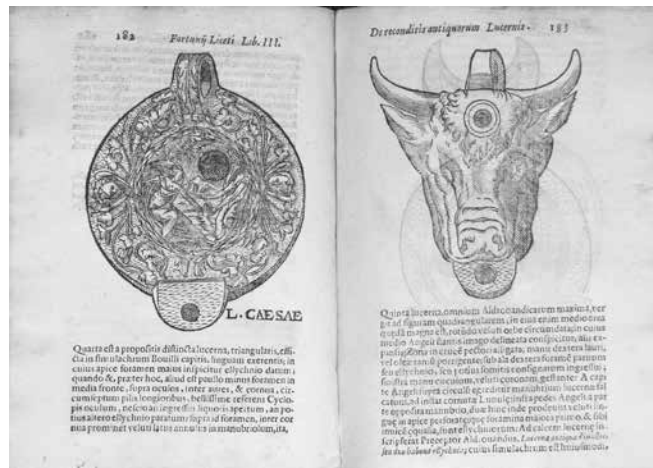 182 Fortunij Liceti Lib. III.
L. CAESAE
Quarta est a propositis distincta lucerna, triangularis, effi-
cta in simulachrum Bouilli capitis, linguam exerentis; in
cuius apice foramen maius inspicitur ellychnio datum;
quando &, præter hoc, aliud est paullo minus foramen in
media fronte, supra oculos, inter aures, & cornua, cir-
cumseptum pilis longioribus, bellissime referens Cyclo-
pis oculum, nescio an ingressui liquoris apertum, an po-
tius altero ellychnio paratum: supra id foramen, inter cor
nua prominet veluti latus annulus in manubriolum, ita,
De reconditis antiquorum Lucernis. 183
Quinta lucerna, omnium Aldrouandicarum maxima, ver
git ad figuram quadrangularem; in eius enim medio area
quædā magna est, rotūdo veluti orbe circumdata, in cuius
medio Angeli stantis imago delineata conspicitur, alis ex-
pansis,
vel olex ramū porrigens; sub ala dextera foramē paruum
seu ellychnio, seu potius fomitis consignatum ingressui;
sinistra manu
te opposita manubrio, duæ hinc inde prodeunt veluti lin-
guæ in apice perforatæ,
inuicē æqualia, sunt ellychniorum: Ad calcem lucernę in-
scripserat Preceptor Aldrouandus, Lucerna antiqua
seu duo habens ellychnia; cuius simulachrum est huiusmodi,